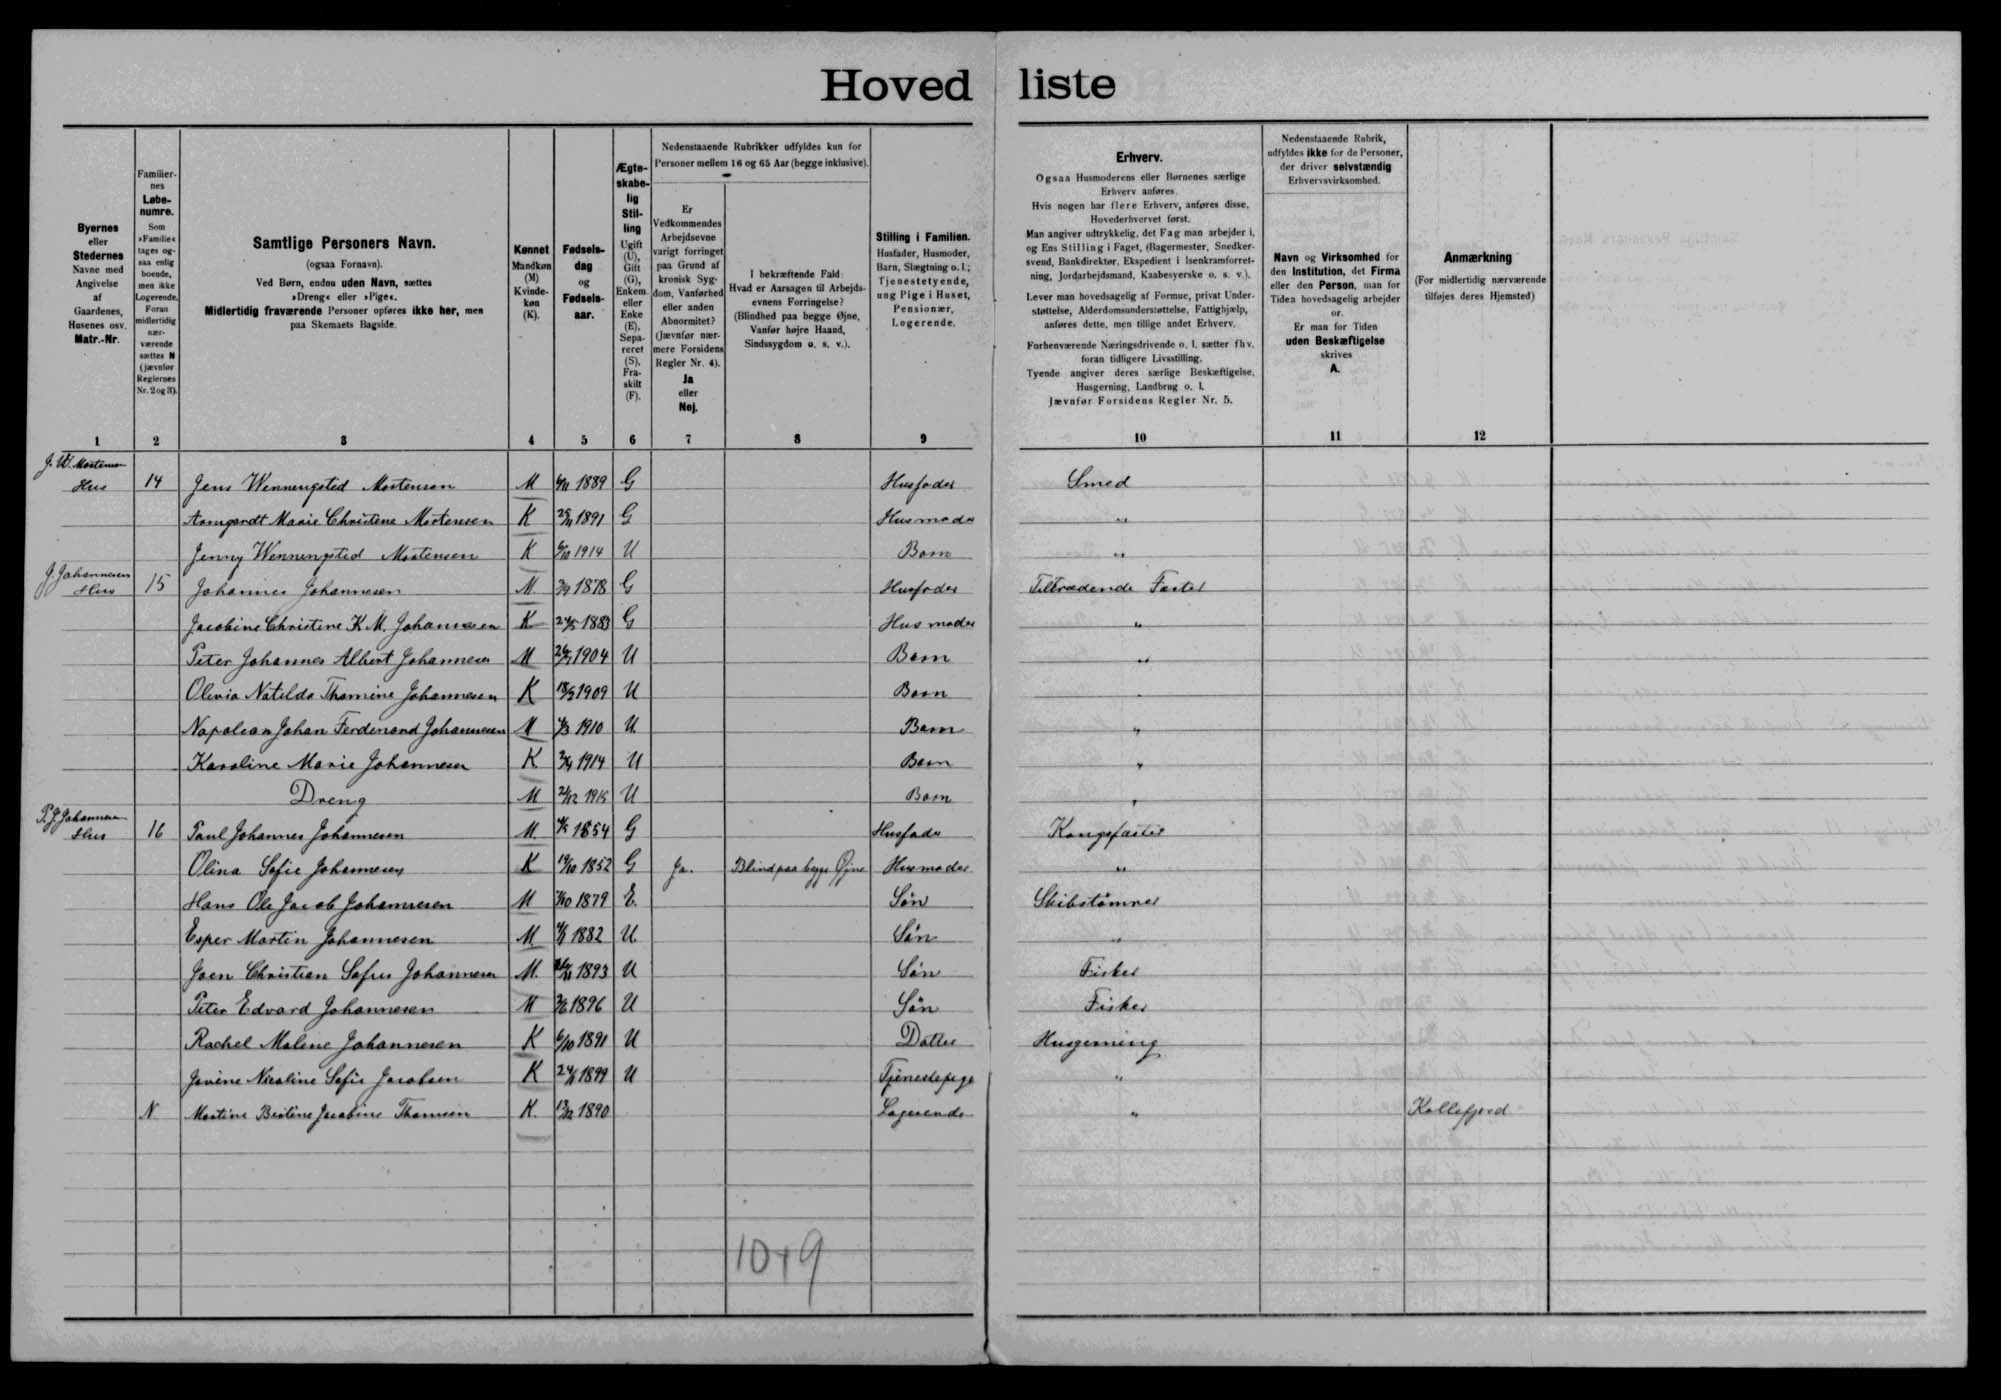 Hovedliste
Byernes eller Stedernes Navne med Angivelse af Gaardenes, Husenes osv. Matr.-Nr.
Familiernes Løbenumre. Som »Familie« tages ogsaa enlig boende, men ikke Logerende. Foran midlertidig nærværende sættes N (jævnfør Reglernes Nr. 2 og 3).
Samtlige Personers Navn.
(ogsaa Fornavn).
Ved Børn, endnu uden Navn, sættes
»Dreng« eller »Pige«.
Midlertidig fraværende Personer opføres ikke her, men
paa Skemaets Bagside.
Kønnet Mandkøn (M) Kvindekøn (K).
Fødselsdag og Fødselsaar.
Ægteskabelig Stilling Ugift (U), Gift (G), Enkem. eller Enke (E), Separeret (S), Fraskilt (F).
Nedenstaaende Rubrikker udfyldes kun for
Personer mellem 16 og 65 Aar (begge inklusive).
Er Vedkommendes Arbejdsevne varigt forringet paa Grund af kronisk Sygdom, Vanførhed eller anden Abnormitet? (Jævnfør nærmere Forsidens Regler Nr. 4). Ja eller Nej.
I bekræftende Fald: Hvad er Aarsagen til Arbejdsevnens Forringelse? (Blindhed paa begge Øjne, Vanfør højre Haand, Sindssygdom o. s. v.).
Stilling i Familien. Husfader, Husmoder, Barn, Slægtning o. l.; Tjenestetyende, ung Pige i Huset, Pensionær, Logerende.
Erhverv.
Ogsaa Husmoderens eller Børnenes særlige
Erhverv anføres.
Hvis nogen har flere Erhverv, anføres disse,
Hovederhvervet først.
Man angiver udtrykkelig, det Fag man arbejder i,
og Ens Stilling i Faget, (Bagermester, Snedkersvend, Bankdirektør, Ekspedient i Isenkramforretning, Jordarbejdsmand, Kaabesyerske o. s. v.).
Lever man hovedsagelig af Formue, privat Understøttelse, Alderdomsunderstøttelse, Fattighjælp,
anføres dette, men tillige andet Erhverv.
Forhenværende Næringsdrivende o. l. sætter fhv.
foran tidligere Livsstilling.
Tyende angiver deres særlige Beskæftigelse,
Husgerning, Landbrug o. l.
Jævnfør Forsidens Regler Nr. 5.
Nedenstaaende Rubrik,
udfyldes ikke for de Personer,
der driver selvstændig
Erhvervsvirksomhed.
Navn og Virksomhed for
den Institution, det Firma
eller den Person, man for
Tiden hovedsagelig arbejder
for.
Er man for Tiden
uden Beskæftigelse
skrives
A.
Anmærkning
(For midlertidig nærværende
tilføjes deres Hjemsted)
1 2 3 4 5 6 7 8 9 10 11 12
J. W. Mortensen
Hus 14 Jens Wenningsted Mortensen M 1889 G Husfader Smed
Armgardt Marie Christine Mortensen K 1891 G Husmoder "
Jenny Wenningsted Mortensen K 6/10 1914 U Barn "
J. Johannesen
Hus 15 Johannes Johannesen M. 1878 G Husfader Tiltrædende Fæster
Jacobine Christine K. M. Johannesen K 24/5 1883 G Husmoder "
Peter Johannes Albert Johannesen M 1904 U Barn "
Olivia Natilda Thomine Johannesen K 18/2 1909 U Barn
Napolian Johan Ferdinand Johannesen M 4/3 1910 U. Barn "
Karoline Marie Johannesen K 1914 U Barn "
Dreng M 2/12 1915 U Barn "
P. J. Johannesen
Hus 16 Paul Johannes Johannesen M. 1854 G Husfader Kongsfæster
Olina Sofie Johannesen K 19/10 1852 G Ja. Blind paa begge Øjne Husmoder "
Hans Ole Jacob Johannesen M 1879 E. Søn Skibstømrer
Esper Martin Johannesen M 1882 U. Søn "
Joen Christian Sofus Johannesen M. 1893 U Søn Fisker
Peter Edvard Johannesen M 1896 U Søn Fisker
Rachel Malene Johannesen K 6/10 1891 U Datter Husgerning
Jovine Nicoline Sofie Jacobsen K 1899 U Tjenestepige "
N Martine Bertine Jacobine Thomsen K. 13/12 1890 Logerende " Kollefjord
10+9